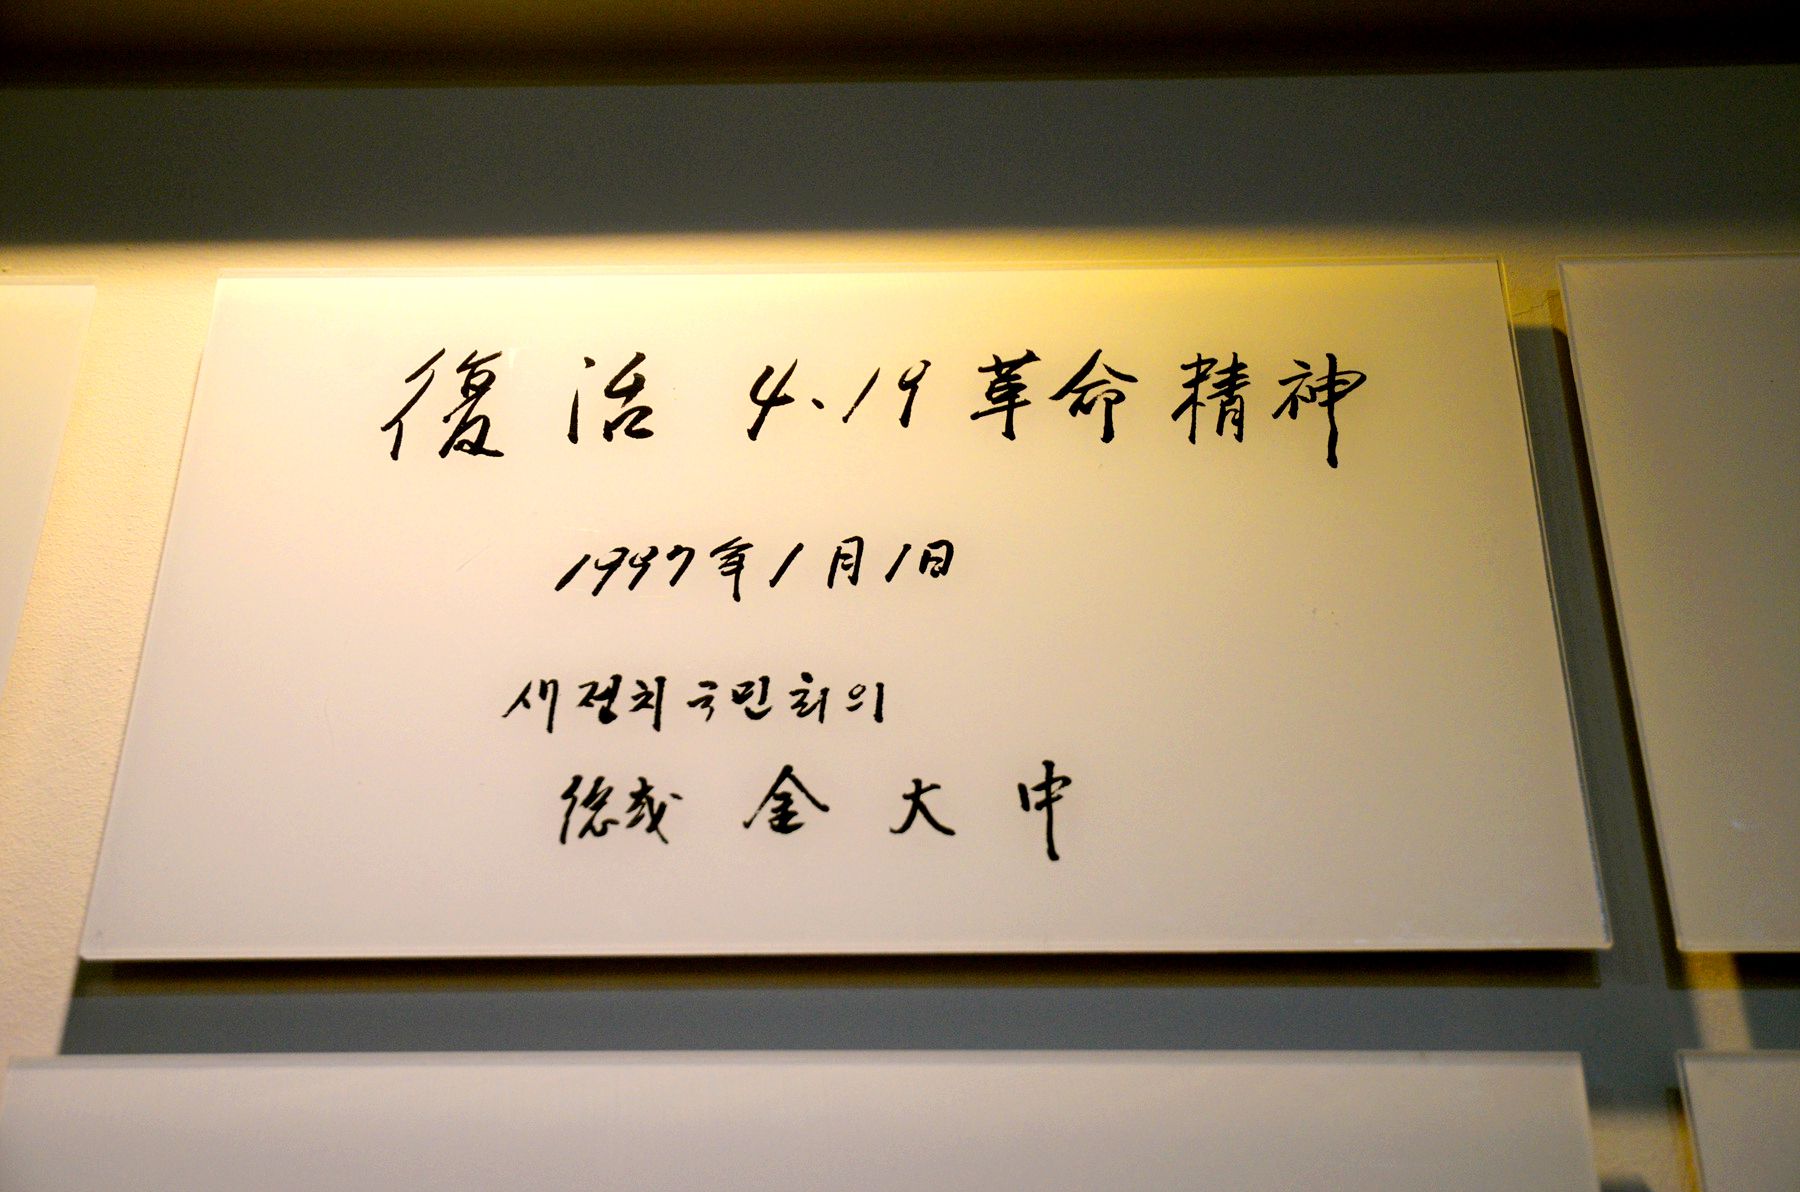 復活 4.19革命精神
1997年1月1日
새정치국민회의
総裁 金大中